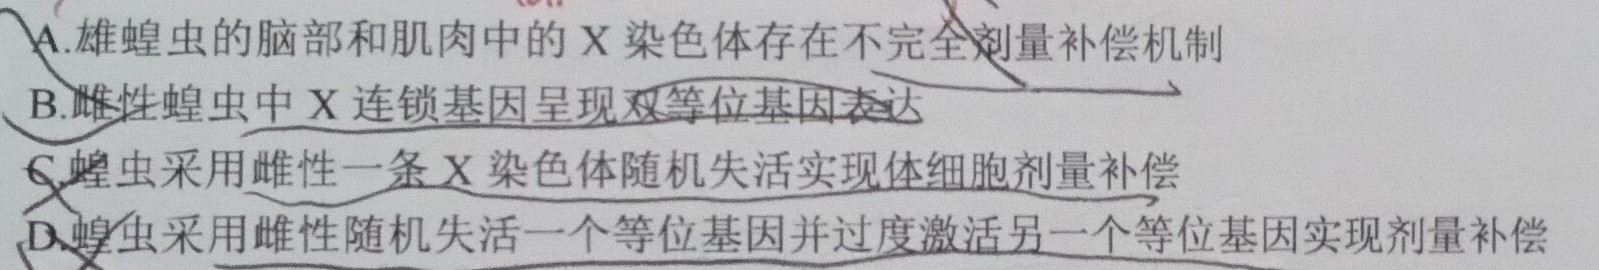 A.雄蝗虫的脑部和肌肉中的 X 染色体存在不完全剂量补偿机制
B.雌性蝗虫中 X 连锁基因呈现双等位基因表达
C.蝗虫采用雌性一条 X 染色体随机失活实现体细胞剂量补偿
D.蝗虫采用雌性随机失活一个等位基因并过度激活另一个等位基因实现剂量补偿